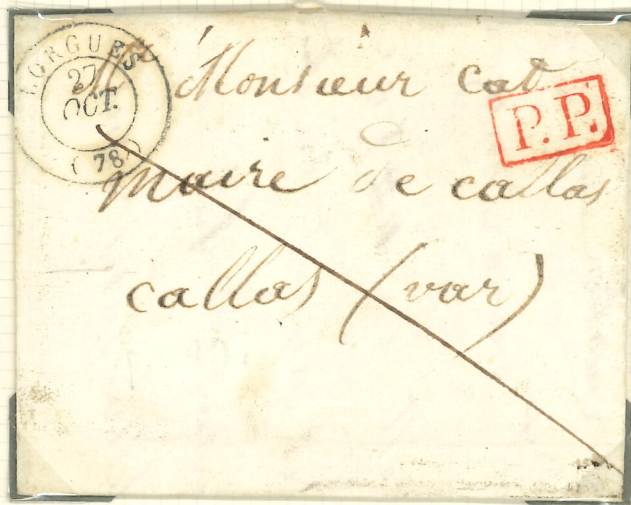 LORGUES
27
OCT.
(78)
P.P.
Monsieur Cat
maire de callas
callas (var)